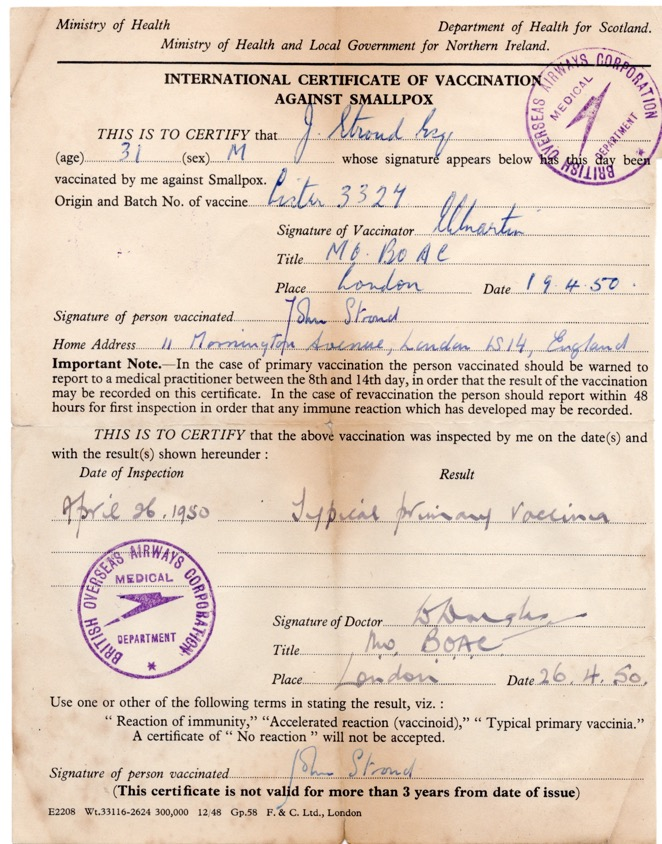 Ministry of Health Department of Health for Scotland.
Ministry of Health and Local Government for Northern Ireland.
INTERNATIONAL CERTIFICATE OF VACCINATION
AGAINST SMALLPOX
BRITISH OVERSEAS AIRWAYS CORPORATION
MEDICAL
DEPARTMENT
THIS IS TO CERTIFY that J. Stroud Esq
(age) 31 (sex) M whose signature appears below has this day been
vaccinated by me against Smallpox.
Origin and Batch No. of vaccine Lister 3327
Signature of Vaccinator
Title MO. BOAC
Place London Date 19.4.50.
Signature of person vaccinated John Stroud
Home Address 11 Mornington Avenue, London W14, England
Important Note.—In the case of primary vaccination the person vaccinated should be warned to
report to a medical practitioner between the 8th and 14th day, in order that the result of the vaccination
may be recorded on this certificate. In the case of revaccination the person should report within 48
hours for first inspection in order that any immune reaction which has developed may be recorded.
THIS IS TO CERTIFY that the above vaccination was inspected by me on the date(s) and
with the result(s) shown hereunder :
Date of Inspection Result
April 26. 1950 Typical primary vaccinia
BRITISH OVERSEAS AIRWAYS CORPORATION
MEDICAL
DEPARTMENT
*
Signature of Doctor
Title Mo. BOAC
Place London Date 26. 4. 50.
Use one or other of the following terms in stating the result, viz. :
“ Reaction of immunity,” “Accelerated reaction (vaccinoid),” “ Typical primary vaccinia.”
A certificate of “ No reaction ” will not be accepted.
Signature of person vaccinated John Stroud
(This certificate is not valid for more than 3 years from date of issue)
E2208 Wt.33116-2624 300,000 12/48 Gp.58 F. & C. Ltd., London